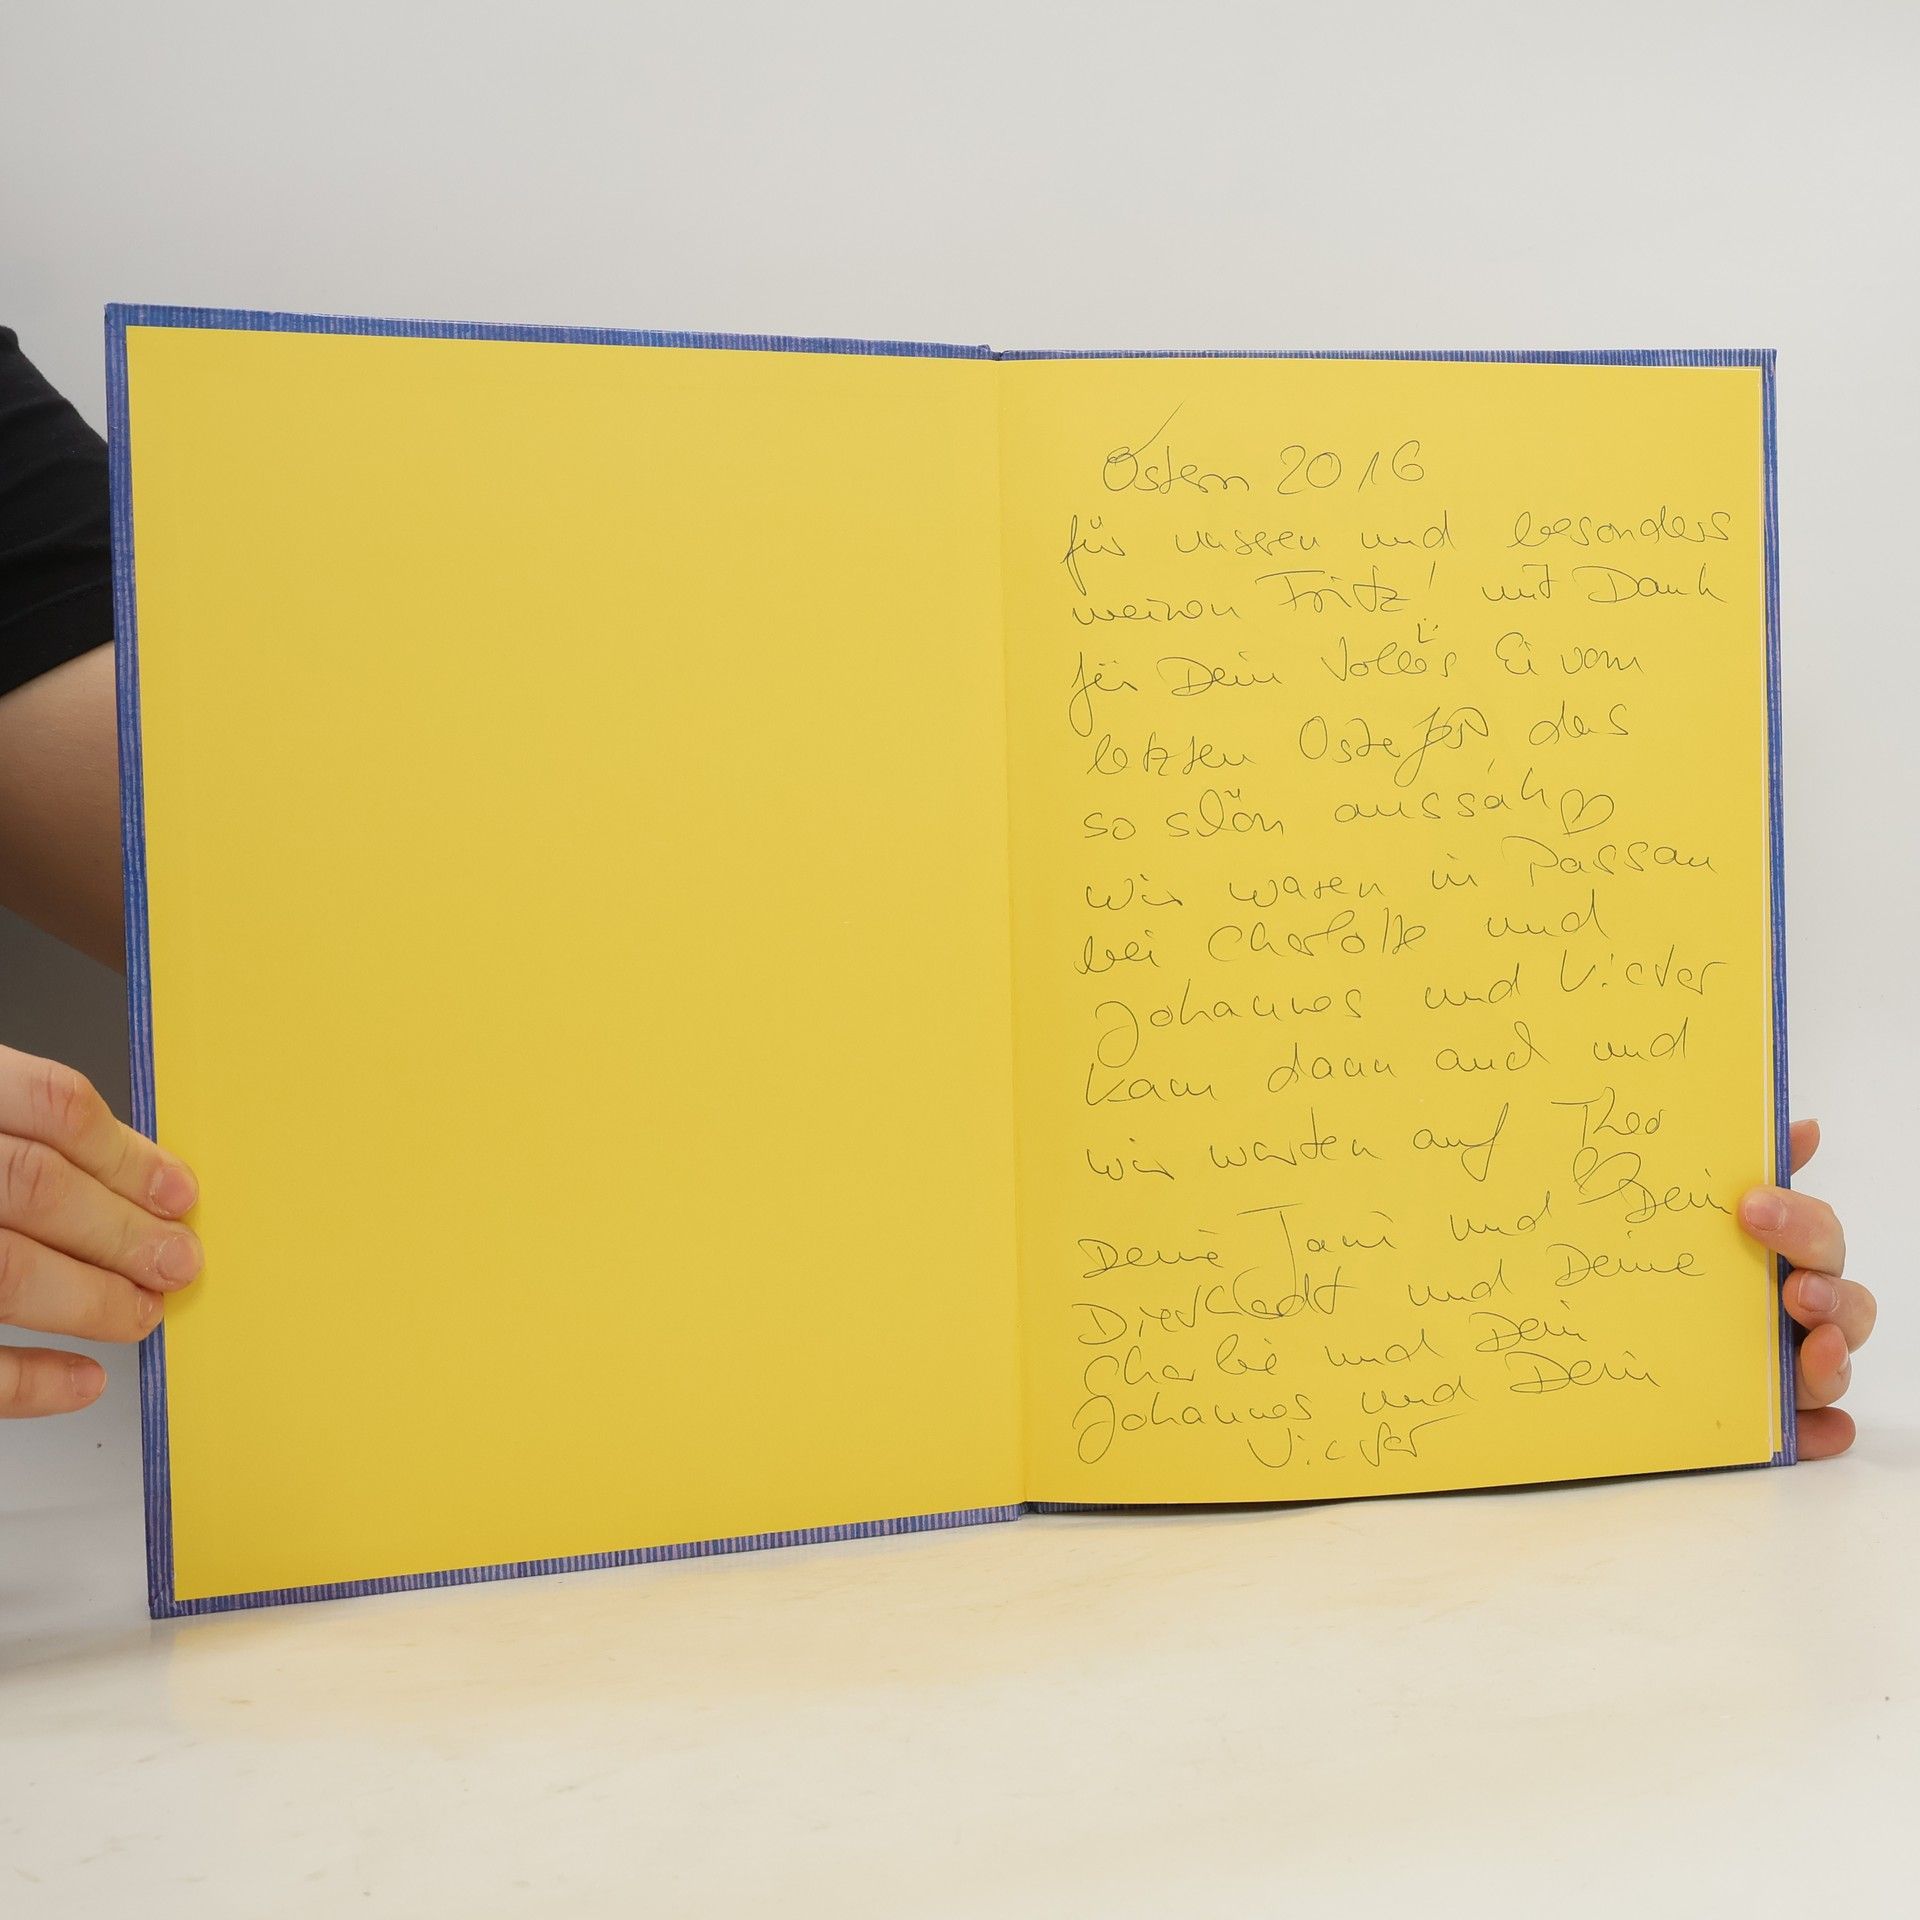 Ostern 2016
für unseren und besonders
meinen Fritz! mit Dank
für Dein tolles Ei vom
letzten Osterfest, das
so schön aussah ♡
Wir waren in Passau
bei Charlotte und
Johannes und Victor
kam dann auch und
wir warten auf Theo
Deine Tani und Dein
und Deine
Charlie und Dein
Johannes und Dein
Victor